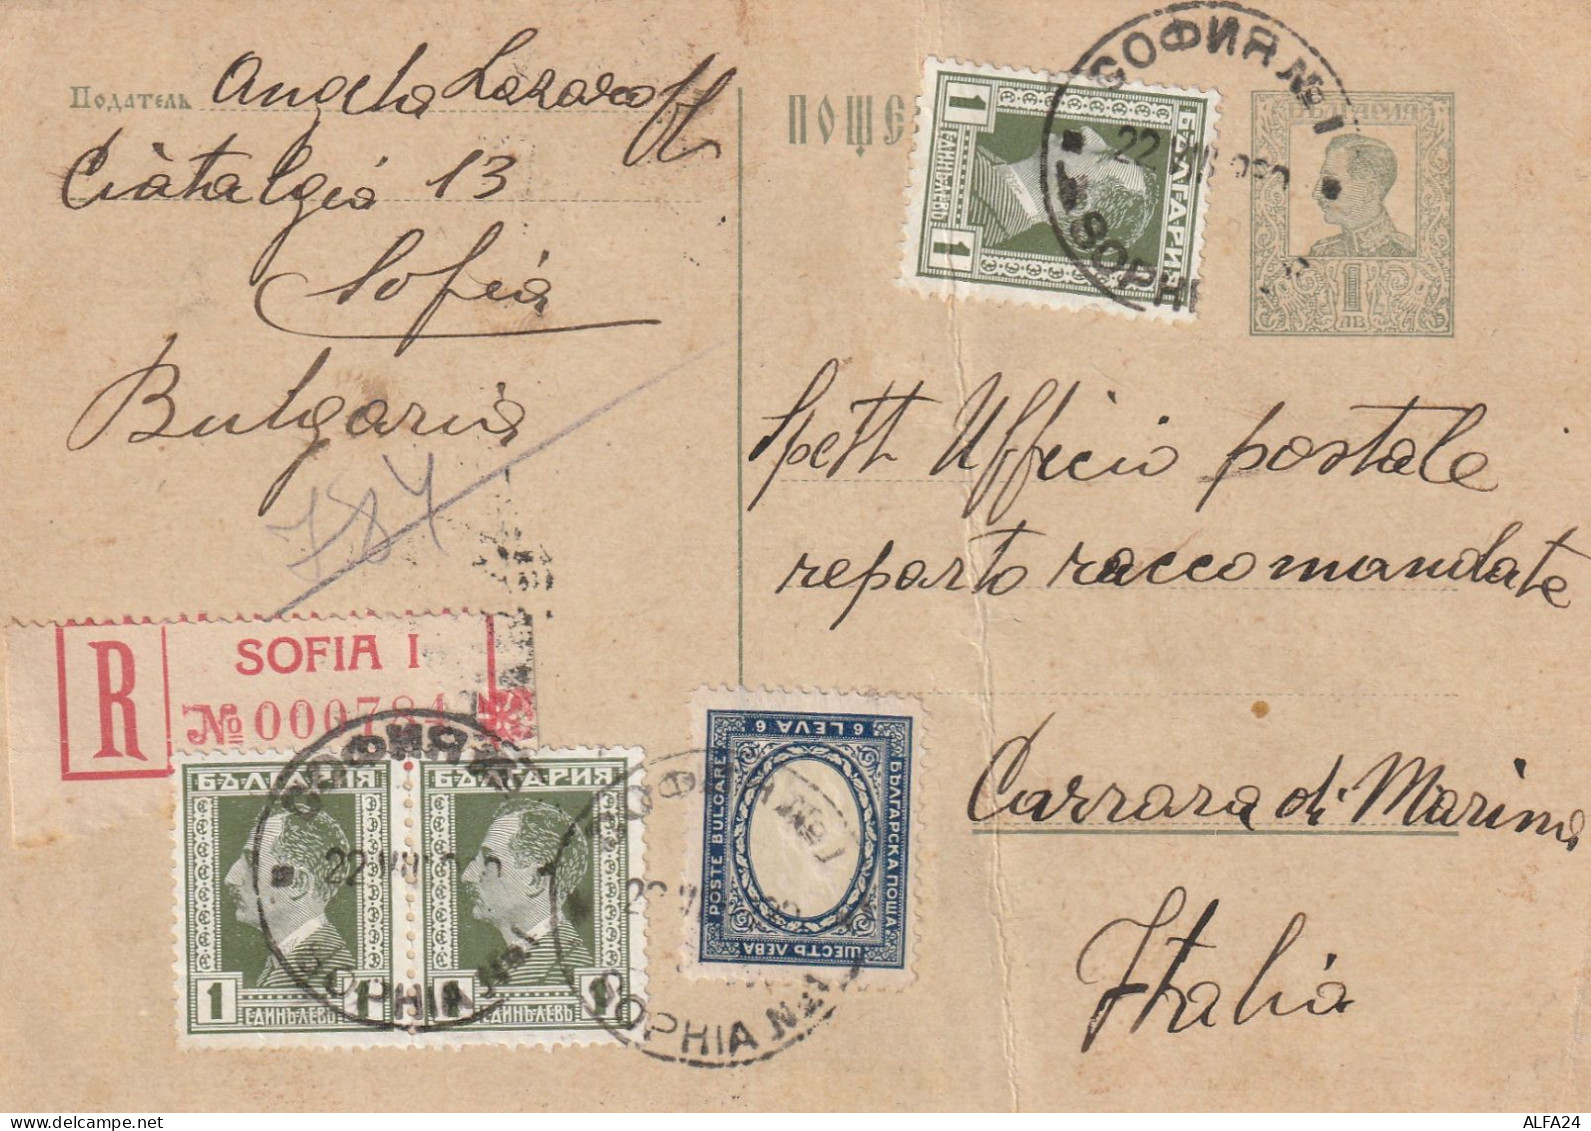 Податель Angela Lazaroff
Ciatalgia 13
Sofia
Bulgaria
784
R
SOFIA I
№ 000784
БЪЛГАРИЯ
1 1
ЕДИНЪ ЛЕВЪ
БЪЛГАРИЯ
1 1
ЕДИНЪ ЛЕВЪ
СОФИЯ №
22 VII
SOPHIA №1
СОФИЯ №1
SOPHIA №1
6 LEVA 6
POSTE BULGARE
БЪЛГАРСКА ПОЩА
ШЕСТЬ ЛЕВА
ПОЩЕ
БЪЛГАРИЯ
1 1
ЕДИНЪ ЛЕВЪ
СОФИЯ №1
22
SOPHI
БЪЛГАРИЯ
1
ЛВ
Spett Ufficio postale
reparto raccomandate
Carrara di Marina
Italia
ALFA24